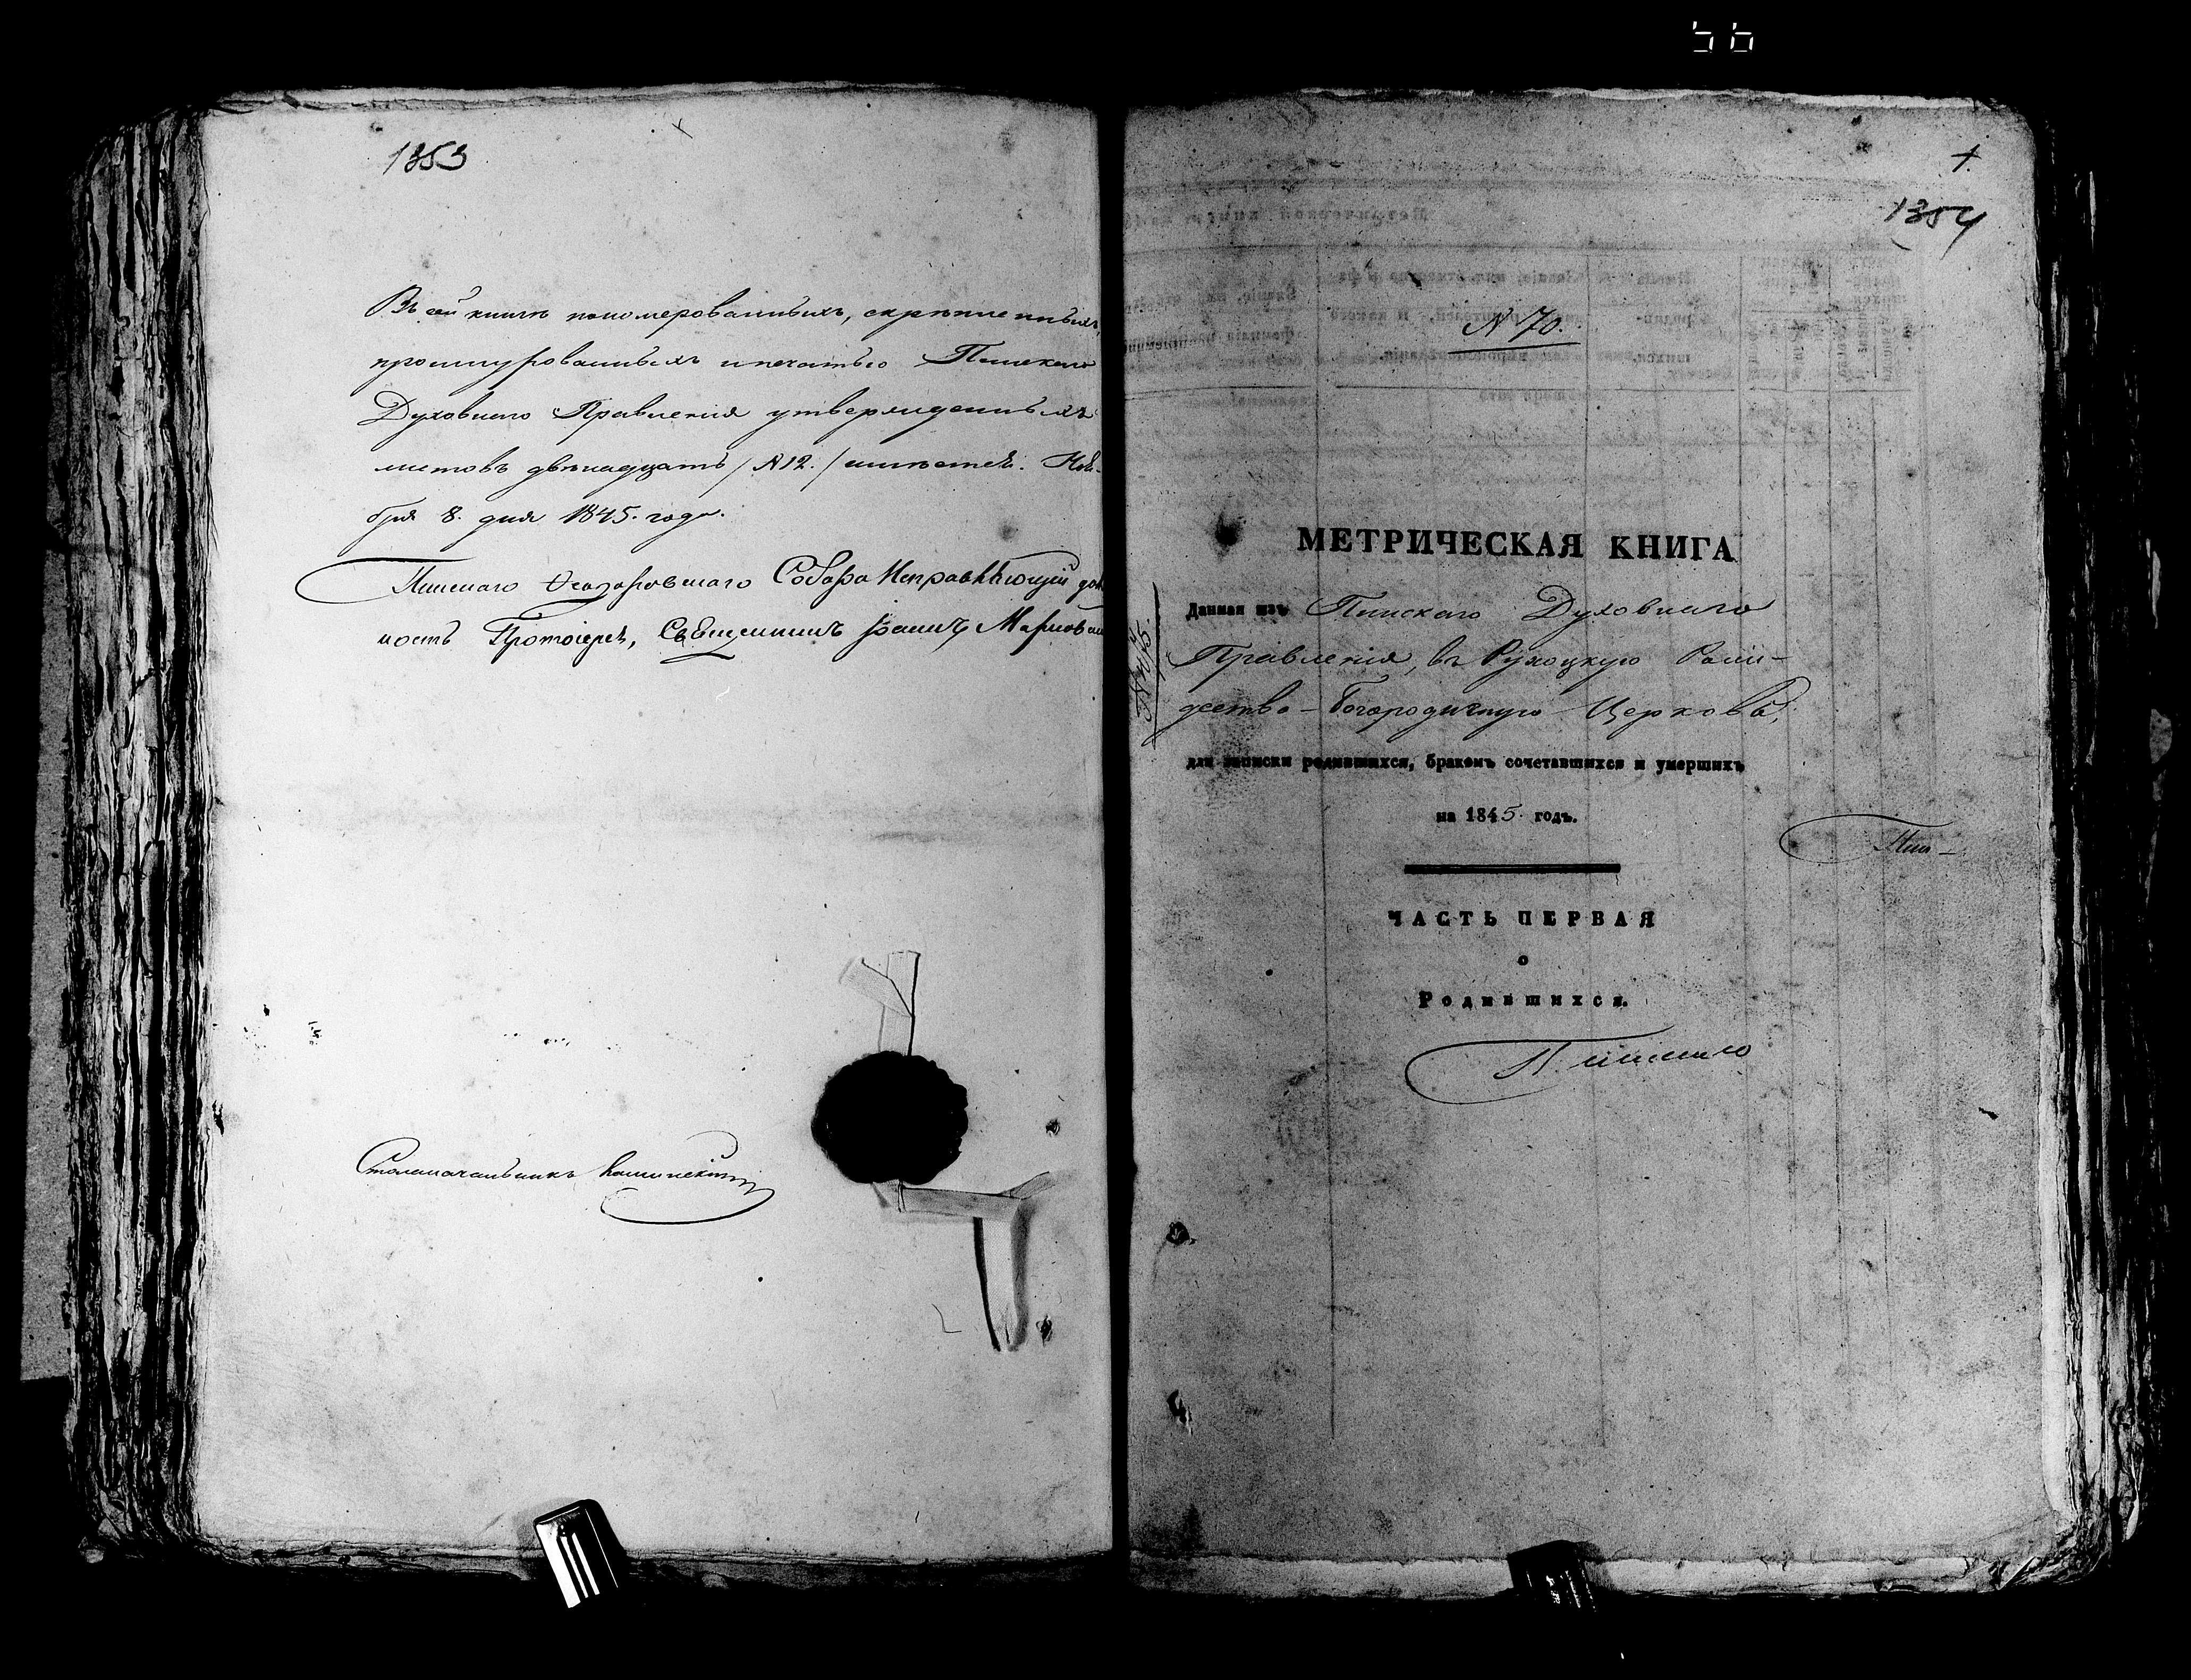 56
1353
Въ сей книгѣ пономерованныхъ, скрѣпленныхъ,
прошнурованныхъ и печатью Пинскаго
Духовнаго Правленія утвержденныхъ
листовъ двѣнадцать /№ 12./ имѣется. Нояб-
бря 8. дня 1845. года.
Пинскаго Ѳеодоровскаго Собора Исправляющій дол
ность Протоіерея, Священникъ Іоаннъ
Столоначальникъ
1.
1354
№ 70.
МЕТРИЧЕСКАЯ КНИГА
Данная изъ Пинскаго Духовнаго
Правленія, въ Рухоцкую Рож-
дество-Богородичную Церковь,
для записки родившихся, бракомъ сочетавшихся и умершихъ
на 1845. годъ.
Пин-
ЧАСТЬ ПЕРВАЯ
о
Родившихся.